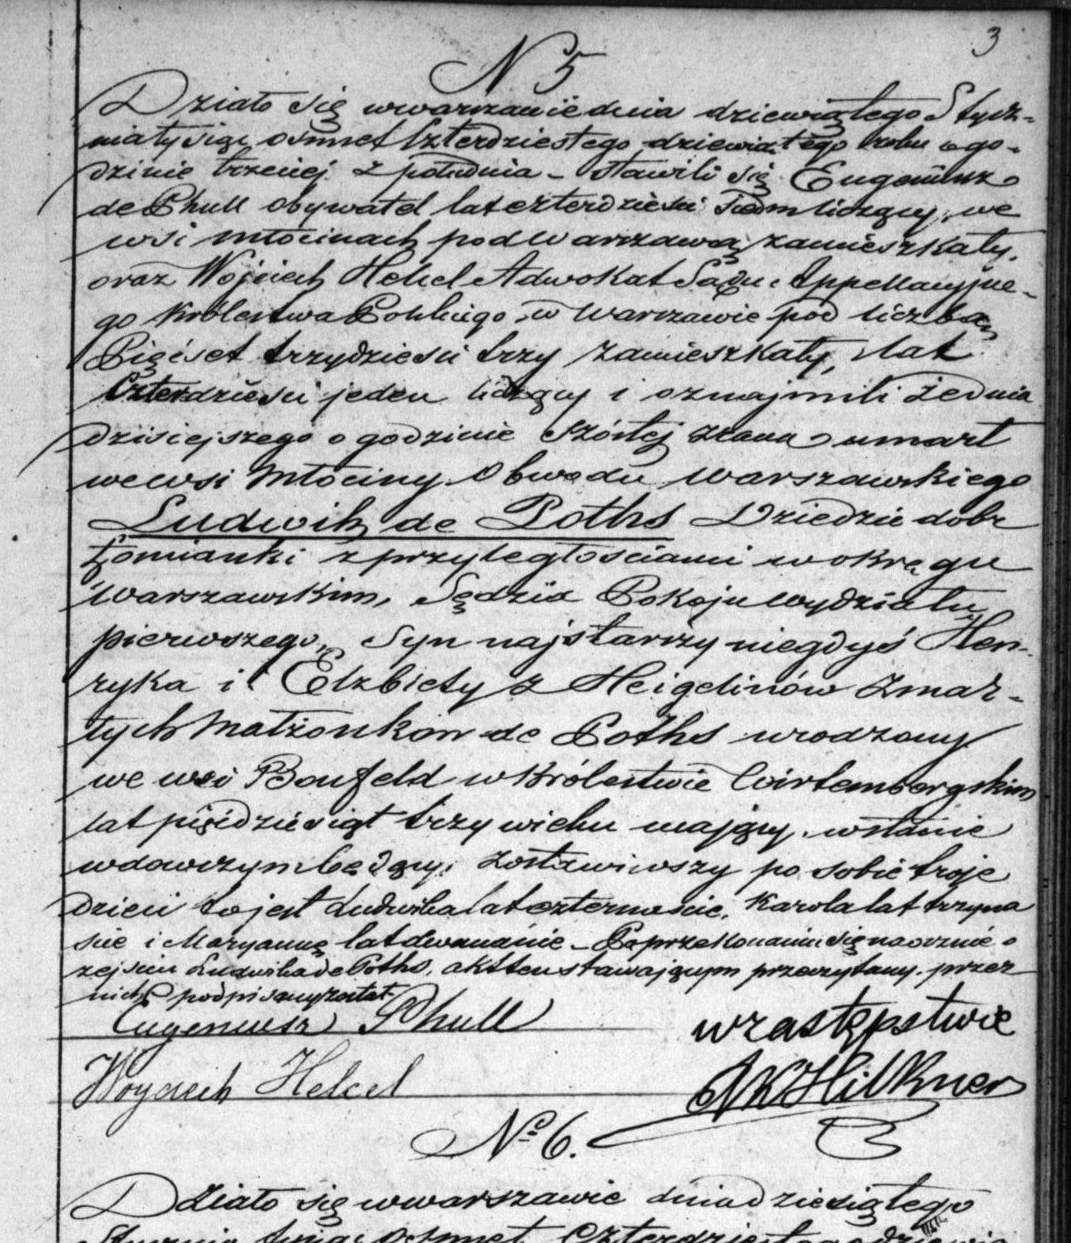 3
N 5
Działo się wwarszawie dnia dziewiątego Stycz-
nia tysiąc osmset Czterdziestego dziewiątego roku o go-
dzinie trzeciej z południa – stawili się Eugeniusz
de Phull obywatel lat czterdzieści siedm liczący, we
wsi Młocinach pod Warszawą zamieszkały,
oraz Wojciech Helcel Adwokat Sądu Appellacyjne-
go Królestwa Polskiego, w Warszawie pod liczbą
Pięćset trzydzieści trzy zamieszkały, lat
Czterdzieści jeden liczący i oznajmili że dnia
dzisiejszego o godzinie szóstej zrana umarł
we wsi Młociny Obwodu Warszawskiego
Ludwik de Poths Dziedzic dobr
Łomianki z przyległościami w okręgu
Warszawskim, Sędzia Pokoju wydziału
pierwszego, Syn najstarszy niegdyś Hen-
ryka i Elzbiety z Heigelinów Zmar-
łych Małżonkow de Poths urodzony
we wsi Bonfeld w Królestwie Wirtembergskim
lat pięćdziesiąt trzy wieku mający, wstanie
wdowczym będący, zostawiwszy po sobie troje
dzieci to jest Ludwika lat czternaście, Karola lat trzyna
ście i Maryannę lat dwanaście – Po przekonaniu się naocznie o
zejściu Ludwika de Poths, akt ten stawającym przeczytany, przez
nich podpisany został
Eugeniusz Phull
w zastępstwie
Woyciech Helcel
No 6.
Działo się w warszawie dnia dziesiątego
Stycznia tysiąc Osmset Czterdziestego dziewią